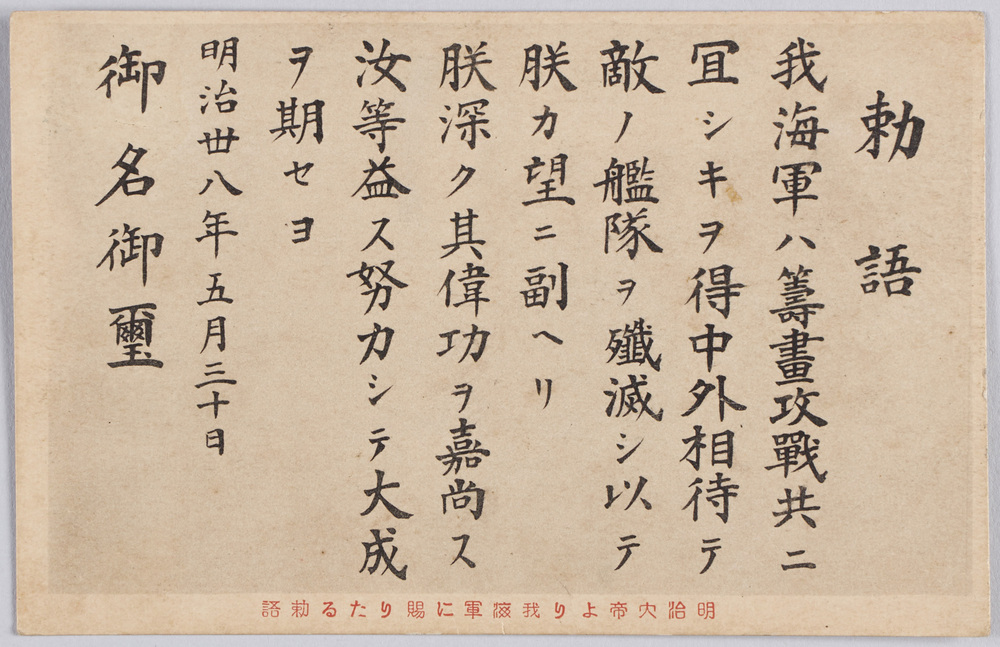 勅語
我海軍ハ籌畫攻戰共ニ
冝シキヲ得中外相待テ
敵ノ艦隊ヲ殲滅シ以テ
朕カ望ニ副ヘリ
朕深ク其偉功ヲ嘉尚ス
汝等益ス努力シテ大成
ヲ期セヨ
明治丗八年五月三十日
御名御璽
明治大帝より我海軍に賜りたる勅語